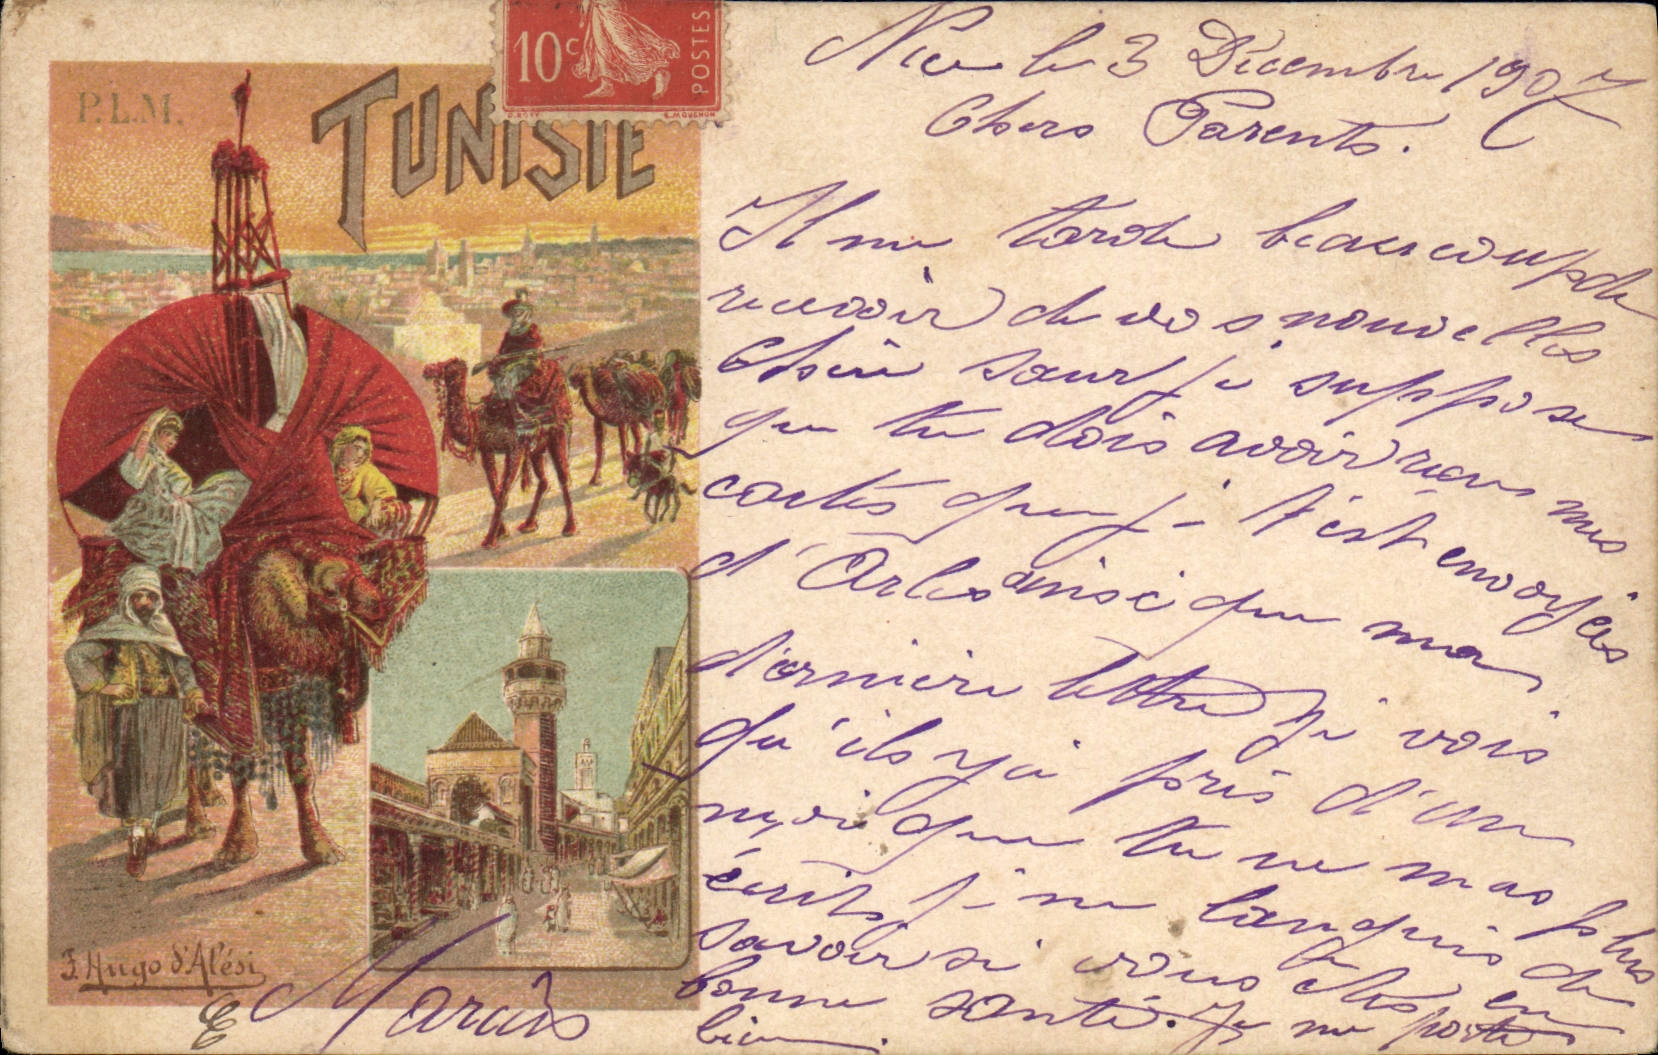 P.L.M.
TUNISIE
10c
POSTES
O. ROTY
E. MOUCHON
Nice le 3 Décembre 1907
Chers Parents.
Il me tarde beaucoup de
recevoir de vos nouvelles
Chère sœur je suppose
que tu dois avoir reçus mes
cartes que je t'est envoyées
d'Arles ainsi que ma
dernière lettre je vois
qu'ils y a près d'un
mois que tu ne mas plus
écrits je ne languis de
savoir si vous êtes en
bonne santé. Je me porte
bien.
F. Hugo d'Alési
E Marcus